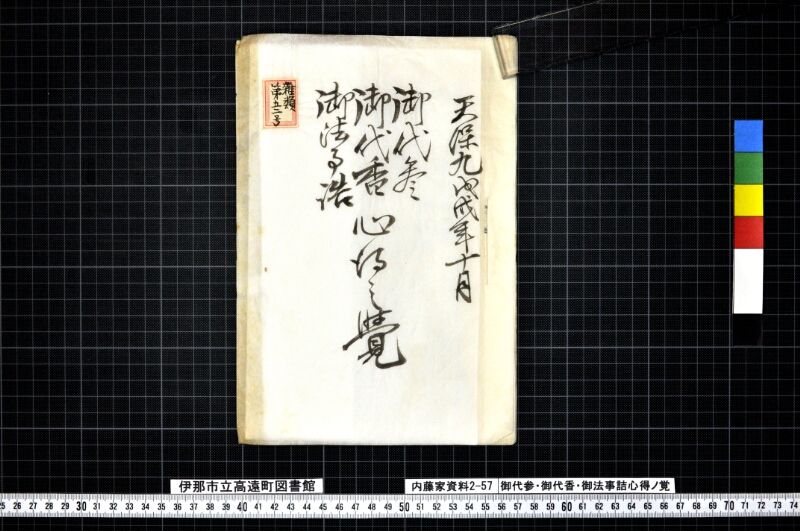 天保九戊戌年十月
御代参
御代香心得之覺
御法事詰
雑類
第五二号
伊那市立高遠町図書館
内藤家資料2-57 御代参・御代香・御法事詰心得ノ覚
25 26 27 28 29 30 31 32 33 34 35 36 37 38 39 40 41 42 43 44 45 46 47 48 49 50 51 52 53 54 55 56 57 58 59 60 61 62 63 64 65 66 67 68 69 70 71 72 73 74